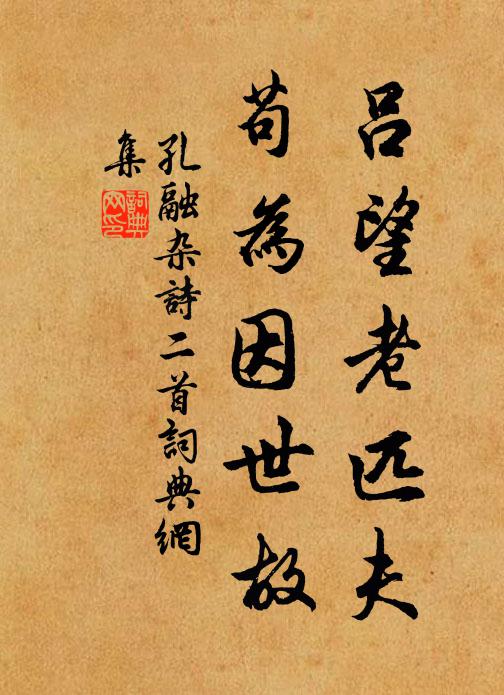 吕望老匹夫
苟為因世故
孔融杂詩二首詞典網
集
詞典网印